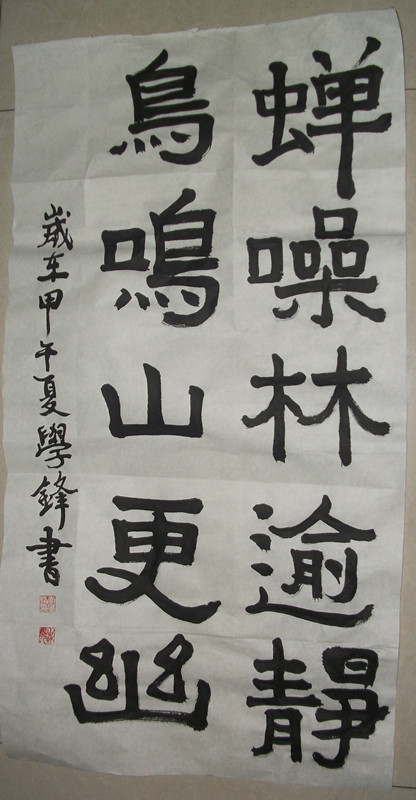 蝉噪林逾静
鳥鳴山更幽
歲在甲午夏學鋒書